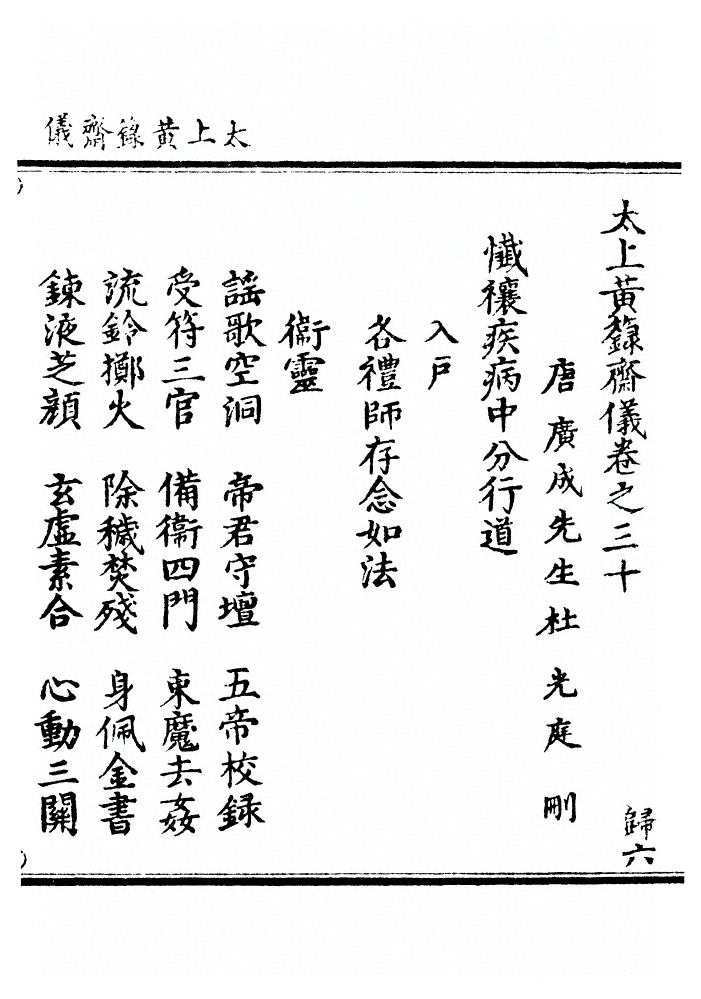 太上黃錄齋儀
太上黃籙齋儀卷之三十
歸六
唐廣成先生杜光庭刪
懺禳疾病中分行道
入戶
各禮師存念如法
衞靈
謠歌空洞 帝君守壇 五帝校録
受符三官 備衞四門 東魔去姦
流鈴擲火 除穢焚殘 身佩金書
鍊液芝顏 玄虛素合 心動三關